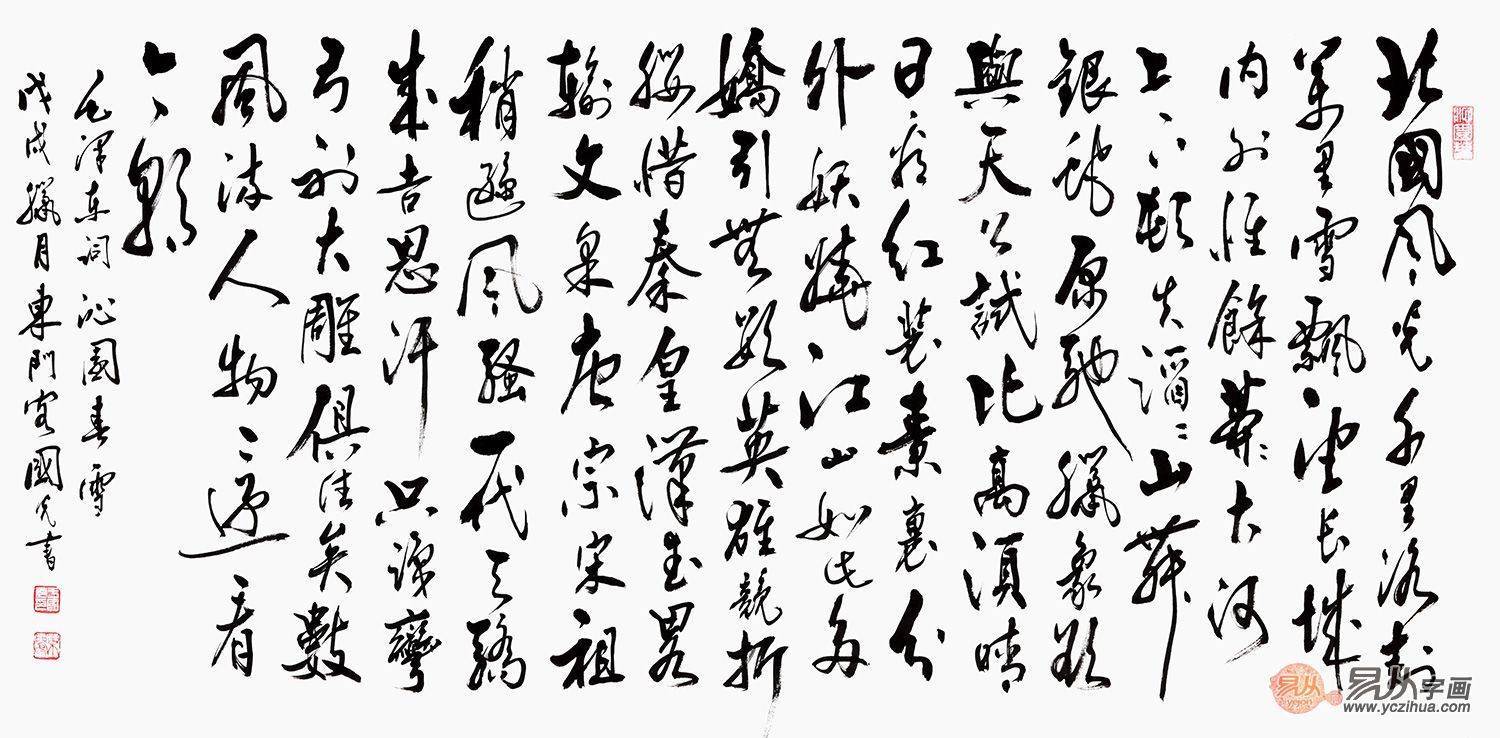 北國风光千里冰封
萬里雪飄望長城
内外惟餘莽〻大河
上下頓失滔〻山舞
銀蛇原馳臘象欲
與天公試比高須晴
日看红裝素裹分
外妖嬈江山如此多
嬌引無數英雄競折
腰惜秦皇漢武略
輸文采唐宗宋祖
稍遜风騷一代天驕
成吉思汗只識彎
弓射大雕俱往矣數
風流人物還看
今朝
毛澤东詞沁園春雪
戊戌臘月東門客國光書
易从
易从字画
www.yczihua.com